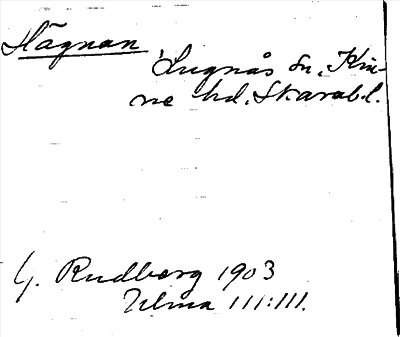 Hägnan
Lugnås sn, Kin-
ne hd, Skarab.l.
G. Rudberg 1903
Ulma 111:111.